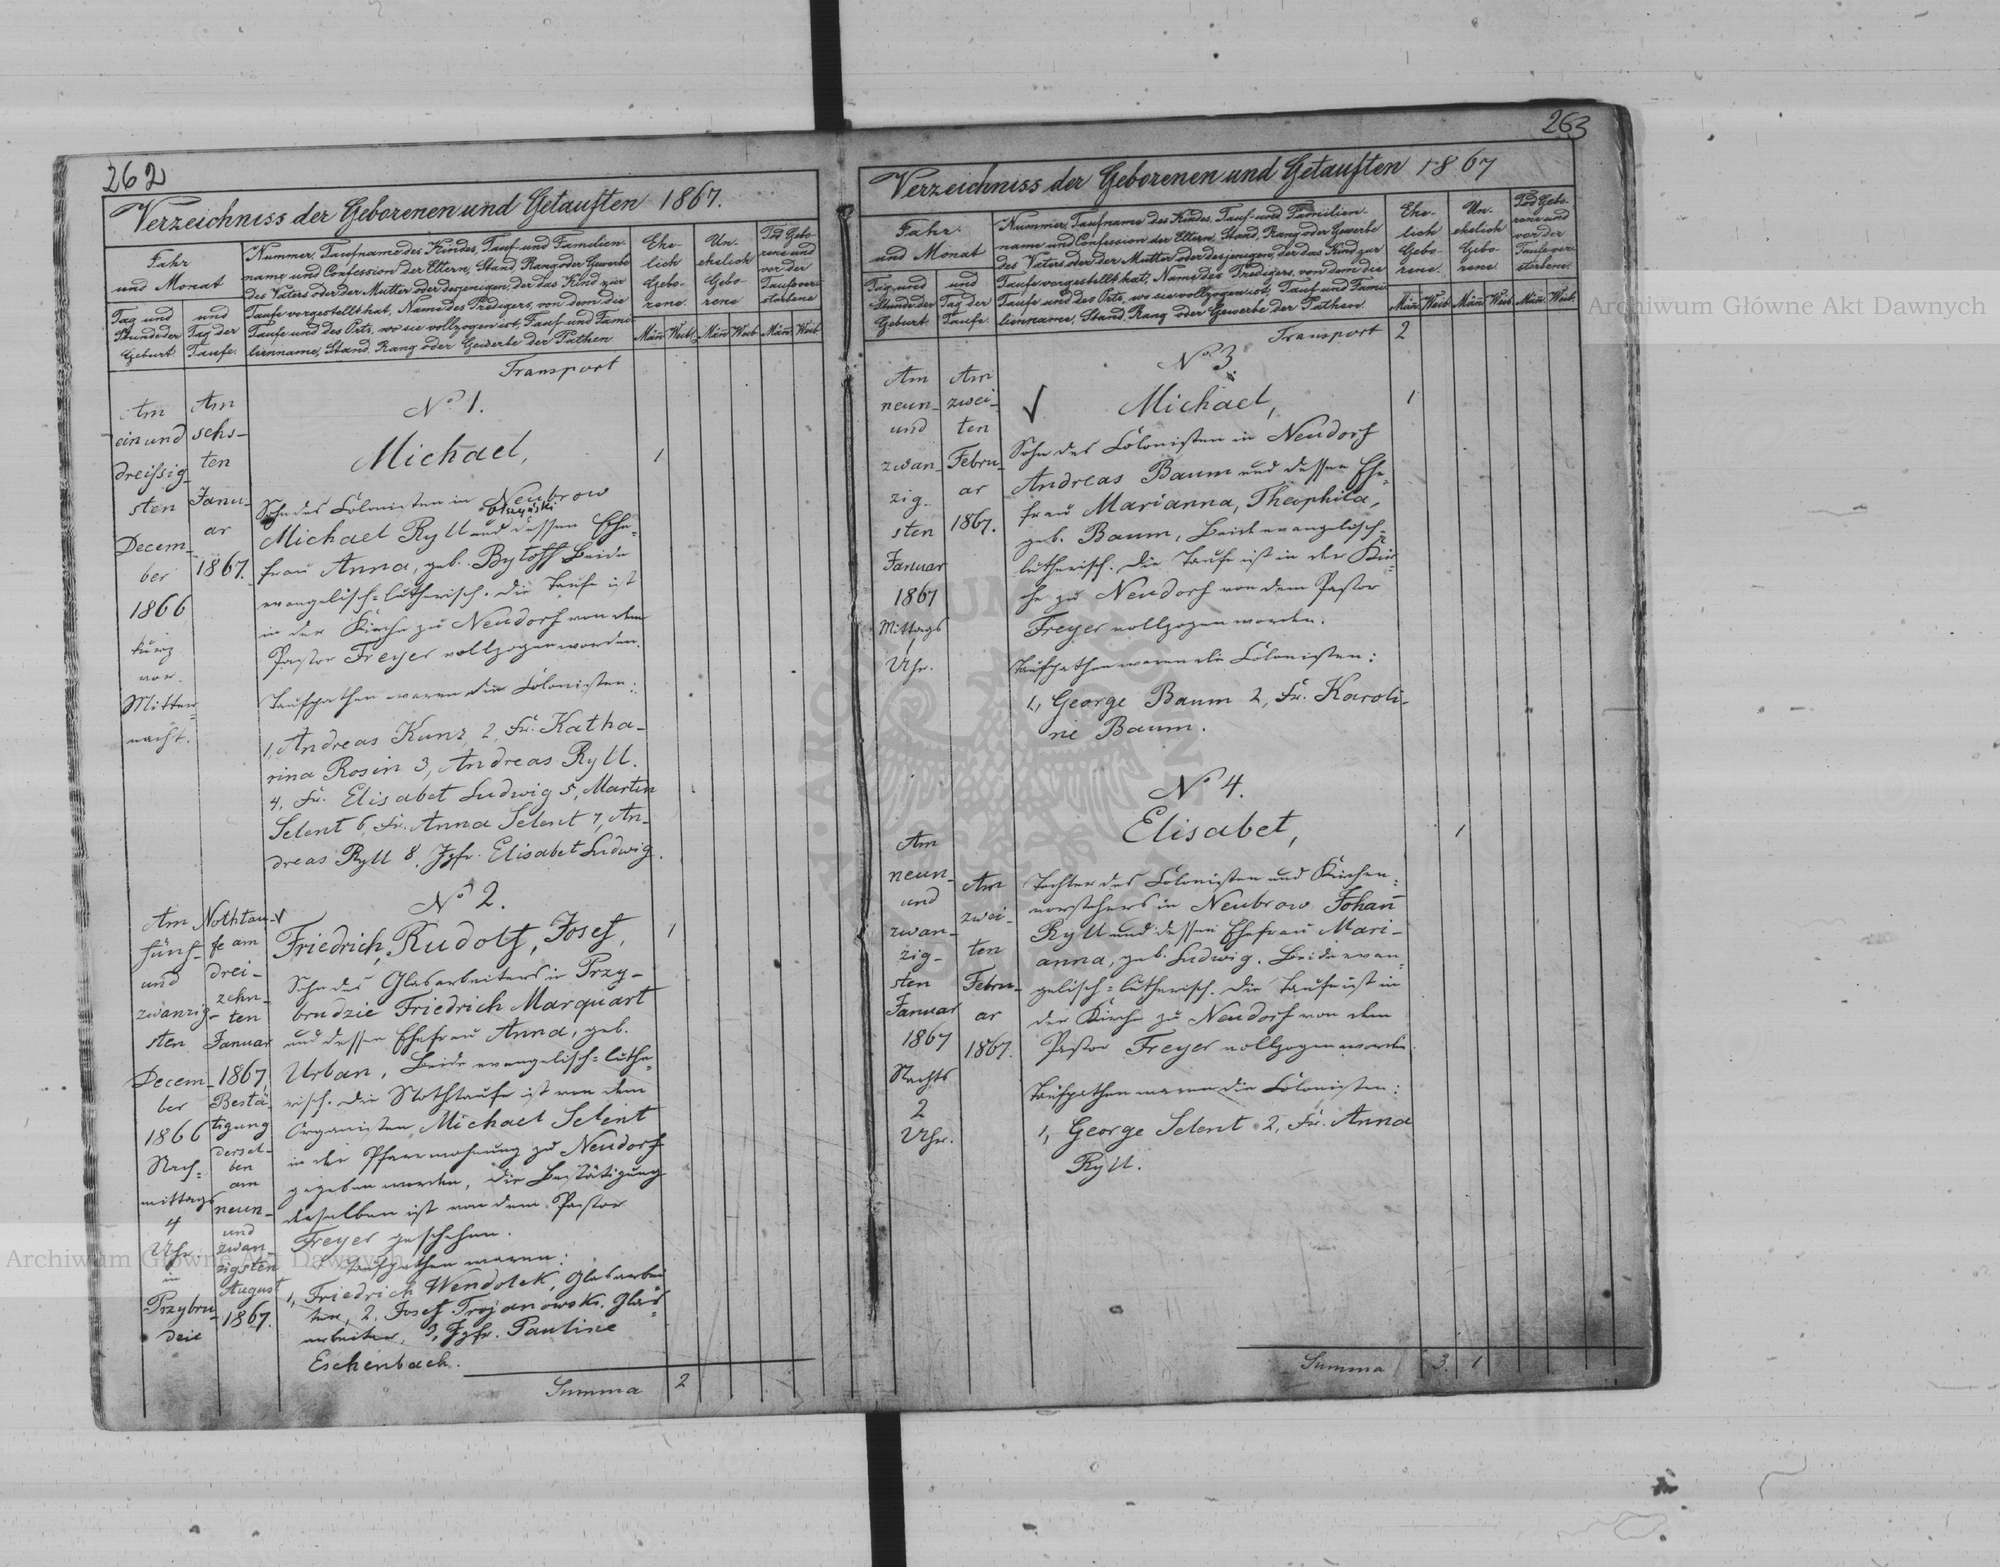 262
Verzeichniss der Geborenen und Getauften 1867.
Jahr
und Monat
Tag und
Stunde der
Geburt
und
Tag der
Taufe.
Nummer, Taufname des Kindes, Tauf- und Familien-
name und Confession der Eltern, Stand, Rang oder Gewerbe
des Vaters oder der Mutter oder desjenigen, der das Kind zur
Taufe vorgestellt hat, Name des Predigers, von dem die
Taufe und des Orts, wo sie vollzogen ist, Tauf- und Fami-
lienname, Stand, Rang oder Gewerbe der Pathen
Ehe-
lich
Gebo-
rene
Un-
ehelich
Gebo-
rene
Tod Gebo-
rene und
vor der
Taufe ver-
storbene
Män̄ Weib. Män̄ Weib Män̄ Weib
Transport
Am
ein und
dreissig-
sten
Decem-
ber
1866
kurz
vor
Mitter-
nacht.
Am
sechs-
ten
Janu-
ar
1867.
No 1.
Michael,
1
Sohn des Colonisten in Neubrow
Michael Ryll und dessen Ehe-
frau Anna, geb. Bytoff Beide
evangelisch-lutherisch. Die Taufe ist
in der Kirche zu Neudorf von dem
Pastor Freyer vollzogen worden.
Taufpathen waren die Colonisten:
1, Andreas Kunz 2, Fr. Katha-
rina Rosin 3, Andreas Ryll.
4, Fr. Elisabet Ludwig 5, Martin
Selent 6, Fr. Anna Selent 7, An-
dreas Ryll 8, Jgfr. Elisabet Ludwig.
Am
fünf-
und
zwanzig-
sten
Decem-
ber
1866
Nach-
mittags
4
Uhr
in
Przybru-
dzie
Nothtau-
fe am
drei-
zehn-
ten
Januar
1867,
Bestä-
tigung
dersel-
ben
am
neun-
und
zwan-
zigsten
August
1867.
No 2.
Friedrich, Rudolf, Josef,
1
Sohn des Glasarbeiters in Przy-
brudzie Friedrich Marquart
und dessen Ehefrau Anna, geb.
Urban, Beide evangelisch-luthe-
risch. Die Nothtaufe ist von dem
Organisten Michael Selent
in der Pfarrwohnung zu Neudorf
gegeben worden, die Bestätigung
derselben ist von dem Pastor
Freyer geschehen.
Taufpathen waren:
1, Friedrich Wendolek, Glasarbei-
ter, 2, Josef Trojanowski Glas-
arbeiter, 3, Jgfr. Pauline
Eschenbach.
Summa 2
263
Verzeichniss der Geborenen und Getauften 1867
Jahr
und Monat
Tag und
Stunde der
Geburt
und
Tag der
Taufe.
Nummer, Taufname des Kindes, Tauf- und Familien-
name und Confession der Eltern, Stand, Rang oder Gewerbe
des Vaters oder der Mutter oder desjenigen, der das Kind zur
Taufe vorgestellt hat, Name des Predigers, von dem die
Taufe und des Orts, wo sie vollzogen ist, Tauf- und Fami-
lienname, Stand, Rang oder Gewerbe der Pathen
Ehe-
lich
Gebo-
rene
Un-
ehelich
Gebo-
rene
Tod Gebo-
rene und
vor der
Taufe ver-
storbene
Män̄ Weib Män̄ Weib. Män̄ Weib.
Transport 2
Am
neun-
und
zwan-
zig-
sten
Januar
1867
Mittags
1
Uhr.
Am
zwei-
ten
Febru-
ar
1867.
No 3.
Michael,
1
Sohn des Colonisten in Neudorf
Andreas Baum und dessen Ehe-
frau Marianna, Theophila,
geb. Baum, Beide evangelisch-
lutherisch. Die Taufe ist in der Kir-
che zu Neudorf von dem Pastor
Freyer vollzogen worden.
Taufpathen waren die Colonisten:
1, George Baum 2, Fr. Karoli-
ne Baum.
Am
neun-
und
zwan-
zig-
sten
Januar
1867
Nachts
2
Uhr.
Am
zwei-
ten
Febru-
ar
1867.
No 4.
Elisabet,
1
Tochter des Colonisten und Kirchen-
vorstehers in Neubrow Johan̄
Ryll und dessen Ehefrau Mari-
anna, geb. Ludwig. Beide evan-
gelisch-lutherisch. Die Taufe ist in
der Kirche zu Neudorf von dem
Pastor Freyer vollzogen worden.
Taufpathen waren die Colonisten:
1, George Selent 2, Fr. Anna
Ryll.
Summa 3. 1
Archiwum Główne Akt Dawnych
Archiwum Główne Akt Dawnych